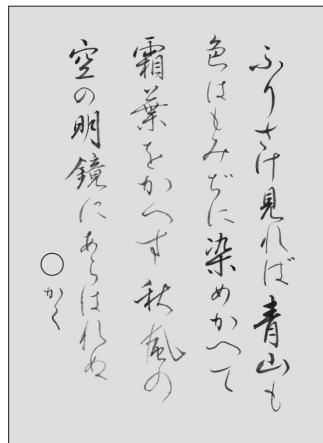 ふりさけ見れば青山も
色はもみぢに染めかへて
霜葉をかへす秋風の
空の明鏡にあらはれぬ
○かく